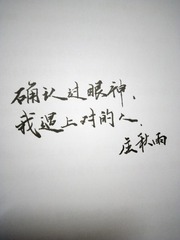 确认过眼神、
我遇上对的人.
秋雨